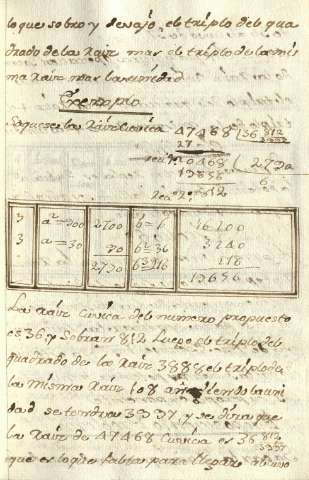 lo que sobro y devajo el triplo del qua
drado de la raiz mas el triplo de la mis
ma raiz mas la unidad
Exemplo
Saquese la raiz cubica 47468 (36 812/3337
27
10468 (2790
19656 6
812
3 a²=900 2700 b=6 16200
3 a=30 90 b²=36 3240
2790 b³=216 216
19656
La raiz cubica del numero propuesto
es 36 y sobran 812 luego el triplo del
quadrado de la raiz 3888 el triplo de
la misma raiz 108 añadiendo la uni
dad se tendra 3337 y se dira que
la raiz de 47468 cubica es 36 812/3337
que es lo que falta para llegar